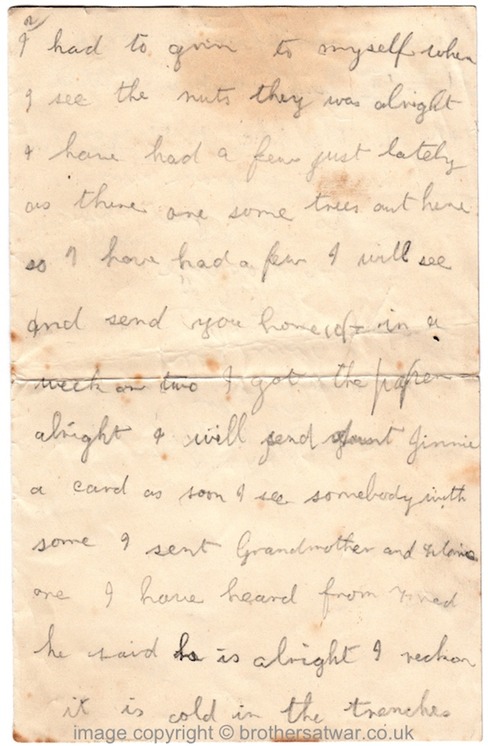 2
I had to grin to myself when
I see the nuts they was alright
I have had a few just lately
as there are some trees out here
so I have had a few I will see
and send you home 10/- in a
week or two I got the paper
alright I will send Aunt Jinnie
a card as soon I see somebody with
some I sent Grandmother and
one I have heard from Fred
he said he is alright I reckon
it is cold in the trenches
image copyright © brothersatwar.co.uk